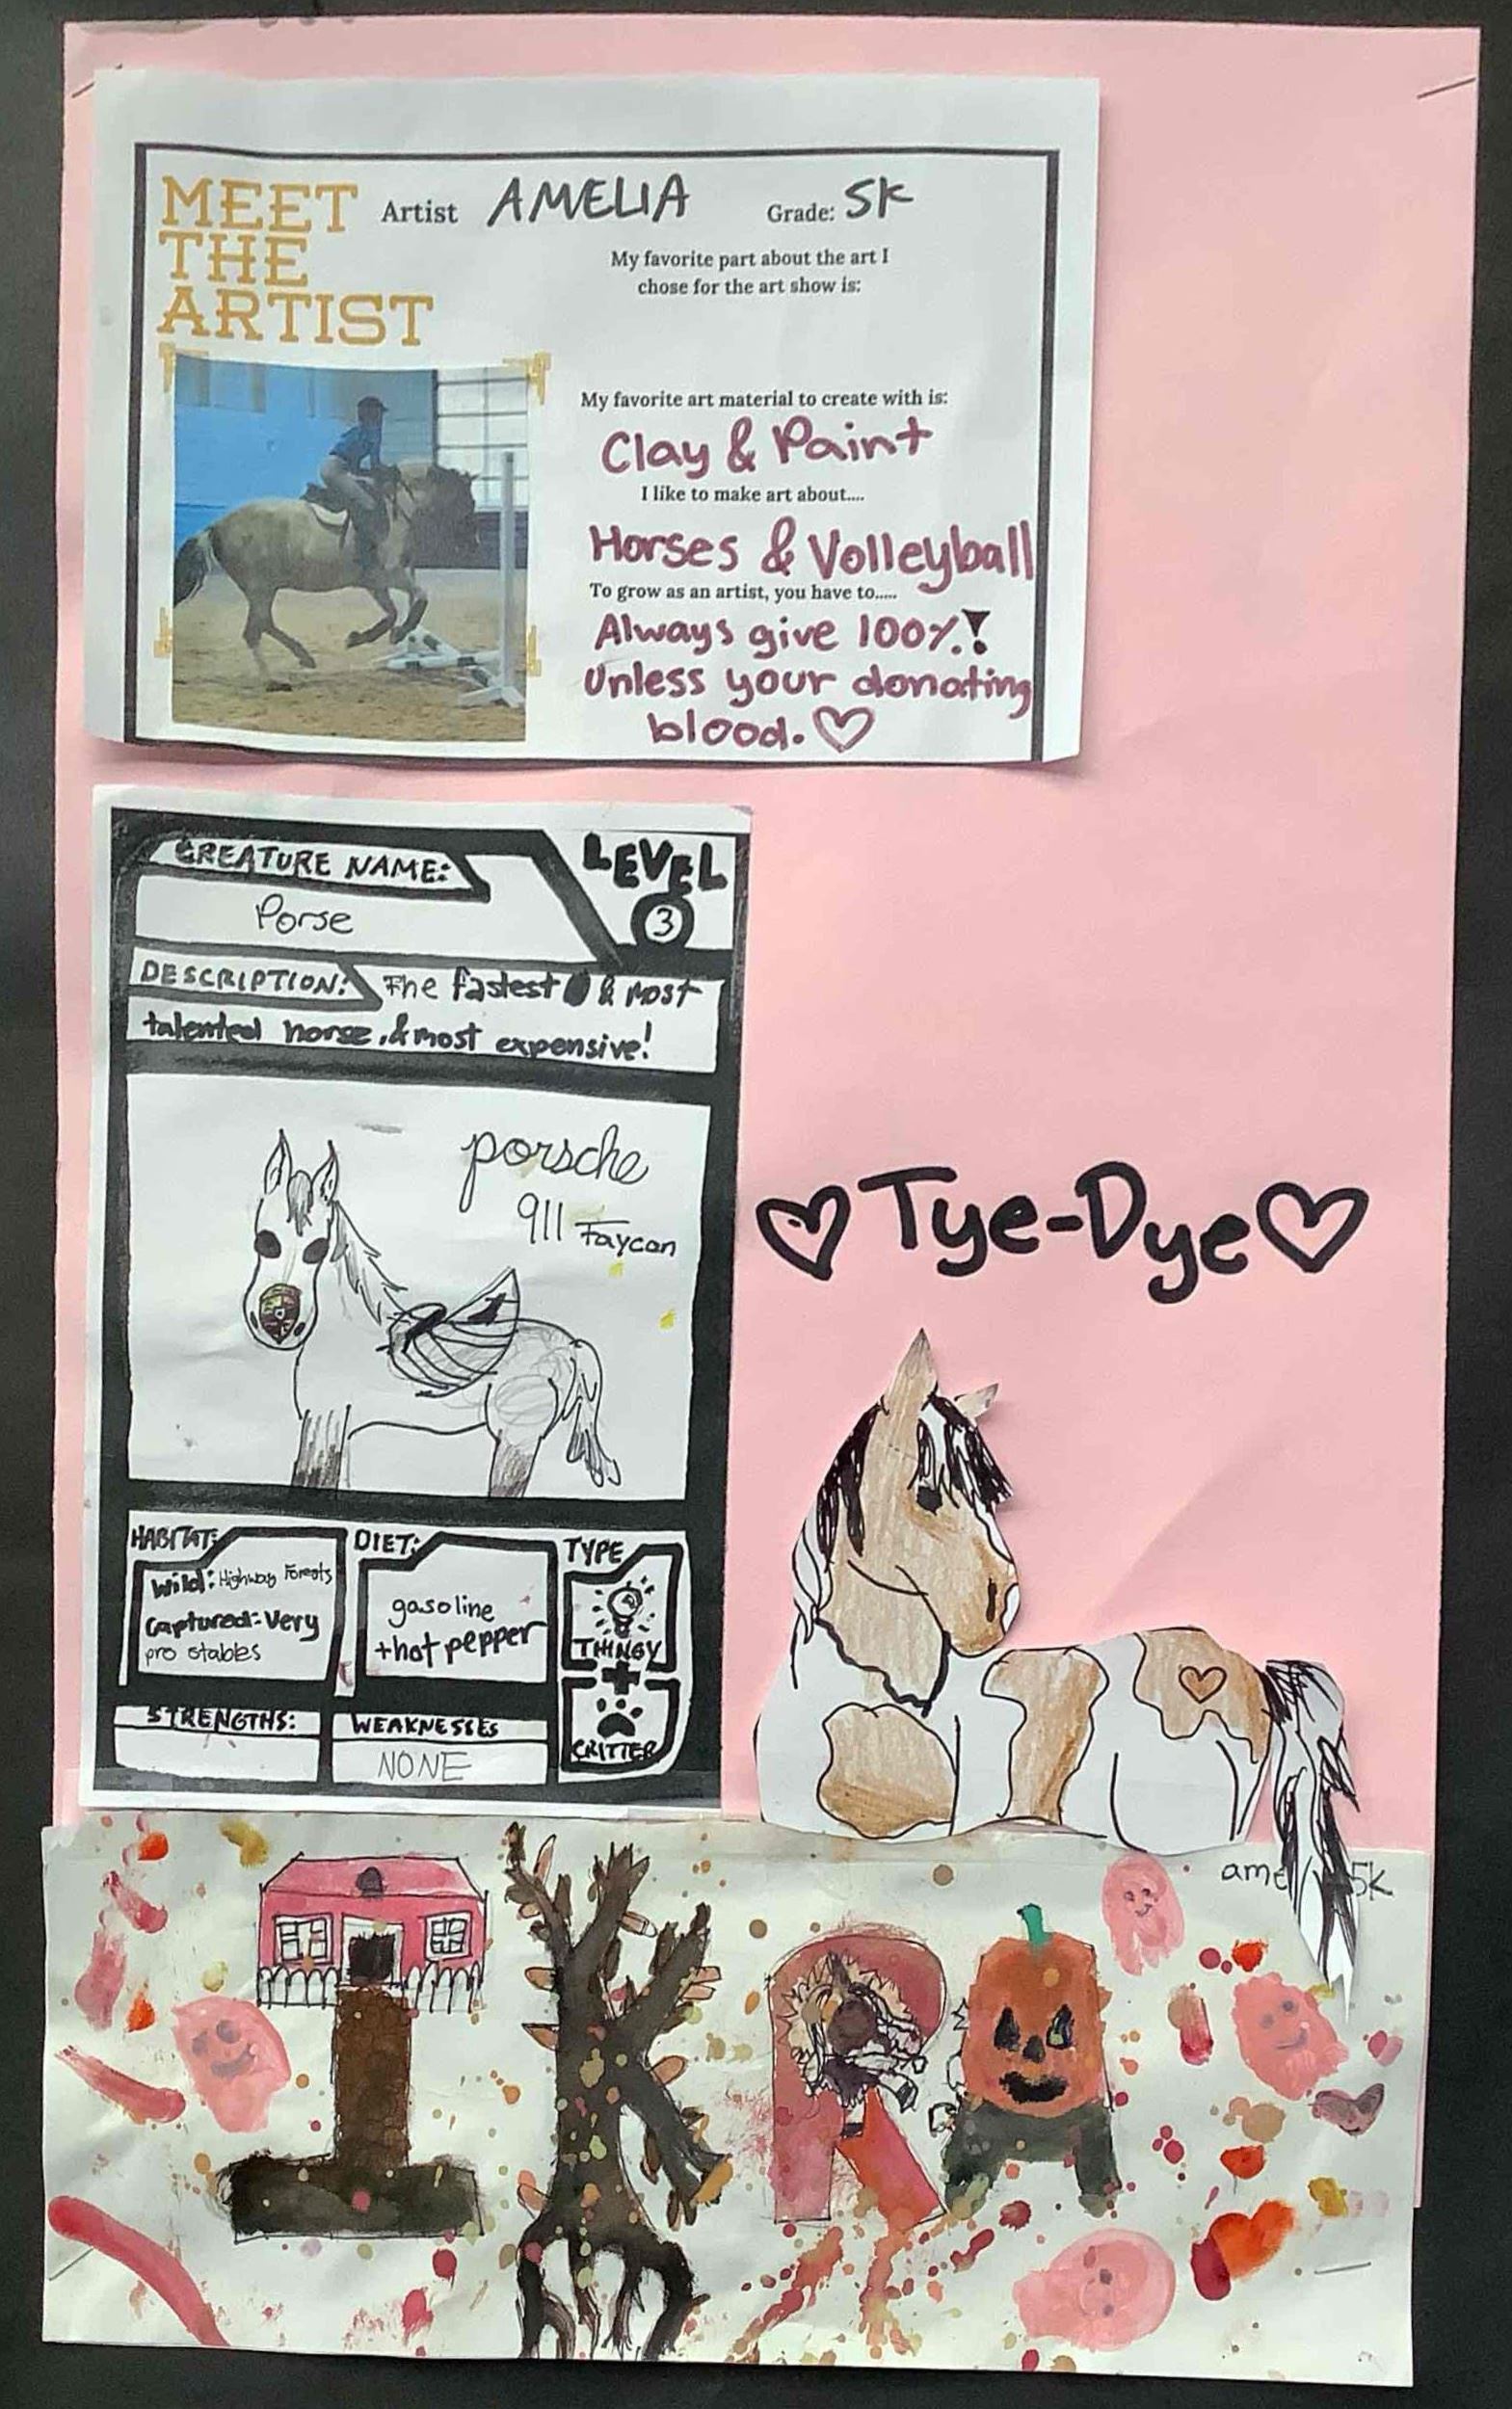 MEET
THE
ARTIST
Artist AMELIA Grade: 5K
My favorite part about the art I
chose for the art show is:
My favorite art material to create with is:
Clay & Paint
I like to make art about....
Horses & Volleyball
To grow as an artist, you have to.....
Always give 100%!
Unless your donating
blood.
CREATURE NAME:
Porse
LEVEL
3
DESCRIPTION: The fastest & most
talented horse, & most expensive!
porsche
911 Taycan
HABITAT:
Wild: Highway Forests
Captured: Very
pro stables
DIET:
gasoline
+hot pepper
TYPE
THINGY
+
CRITTER
STRENGTHS:
WEAKNESSES
NONE
Tye-Dye
ame 5K